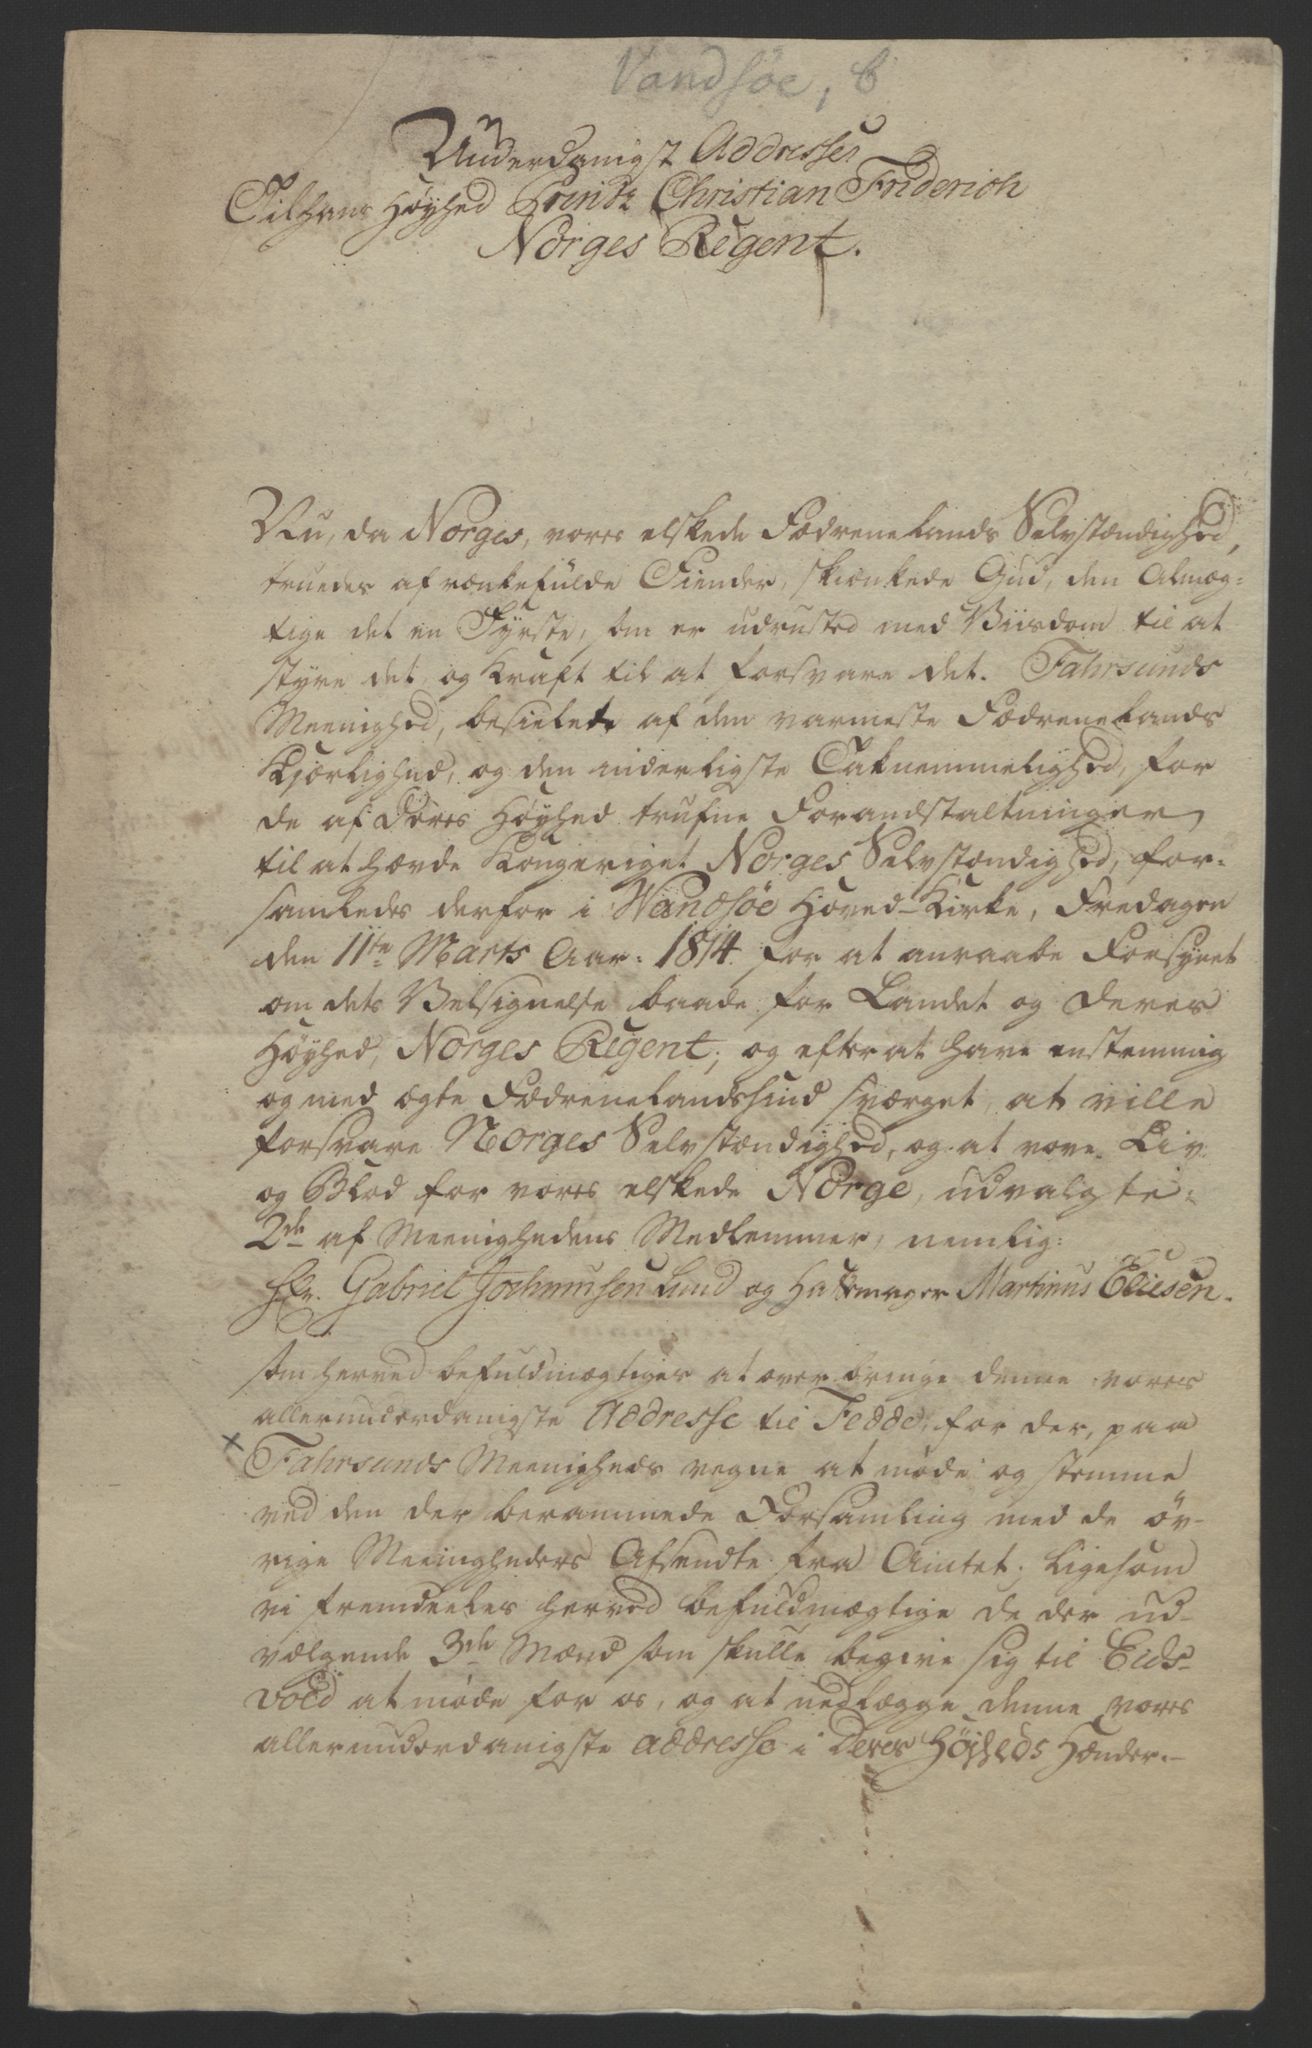 Vandsøe, b
Underdanigst Addresse
Til hans Høyhed Printz Christian Friderich
Norges Regent.
Nu, da Norges, vores elskede Fædrenelands Selvstændighed,
truedes af rænkefulde Fiender, skienkede Gud, den Almæg-
tige det en Fyrste, som er udrusted med Viisdom til at
styre det, og Kraft til at forsvare det. Fahrsunds
Meenighed, besielet af den varmeste Fædrenelands
Kjærlighed, og den inderligste Taknemmelighed, for
de af Deres Høyhed trufne Foranstaltninger
til at hævde Kongeriget Norges Selvstændighed, for-
samledes derfor i Wandsøe Hoved-Kirke, Fredagen
den 11te Marts Aar: 1814. for at anraabe Forsynet
om dets Velsignelse baade for Landet og Deres
Høyhed, Norges Regent; og efter at have enstemmig
og med ægte Fædrenelandssind sværget, at ville
forsvare Norges Selvstændighed, og at vove Liv
og Blod for vores elskede Norge, udvalgte:
2de af Meenighedens Medlemmer, nemlig:
Hr. Gabriel Jochumsen Lund og Hattemager Martinus Eliesen.
som herved befuldmægtiges at overbringe denne vores
allerunderdanigste Addresse til Fedde, for der, paa
x Fahrsunds Meenigheds vegne at møde og stemme
ved den der berammede Forsamling med de øv-
rige Meenigheders Afsendte fra Amtet; ligesom
vi fremdeeles herved befuldmægtige de der ud-
vælgende 3de Mænd som skulle begive sig til Eids-
vold at møde for os, og at nedlægge denne vores
allerunderdanigste addresse i Deres Høyheds Hænder.-